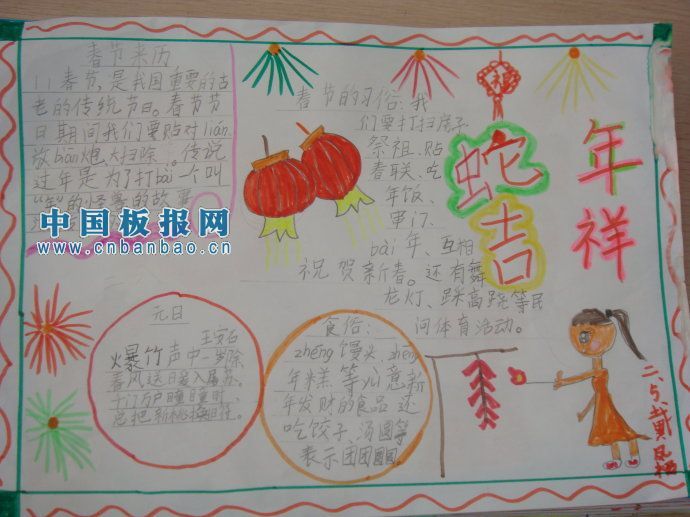 春节来历
春节,是我国重要的古
老的传统节日。春节节
日期间我们要贴对lián
放bàn炮大扫除。传说
过年是为了打bài一个叫
“年”的怪兽的故事
中国板报网
www.cnbanbao.cn
春节的习俗:我
们要打扫房子
祭祖、贴
春联、吃
年饭、
串门、
bài年、互相
祝贺新春。还有舞
龙灯、踩高跷等民
间体育活动。
福
蛇年
吉祥
元日
王安石
爆竹声中一岁除
春风送日暖入屠苏。
千门万户瞳瞳时,
总把新桃换旧符。
食俗:
zhēng馒头、zhēng
年糕等心意新
年发财的食品还
吃饺子、汤圆等
表示团团圆圆。
二、5、戴